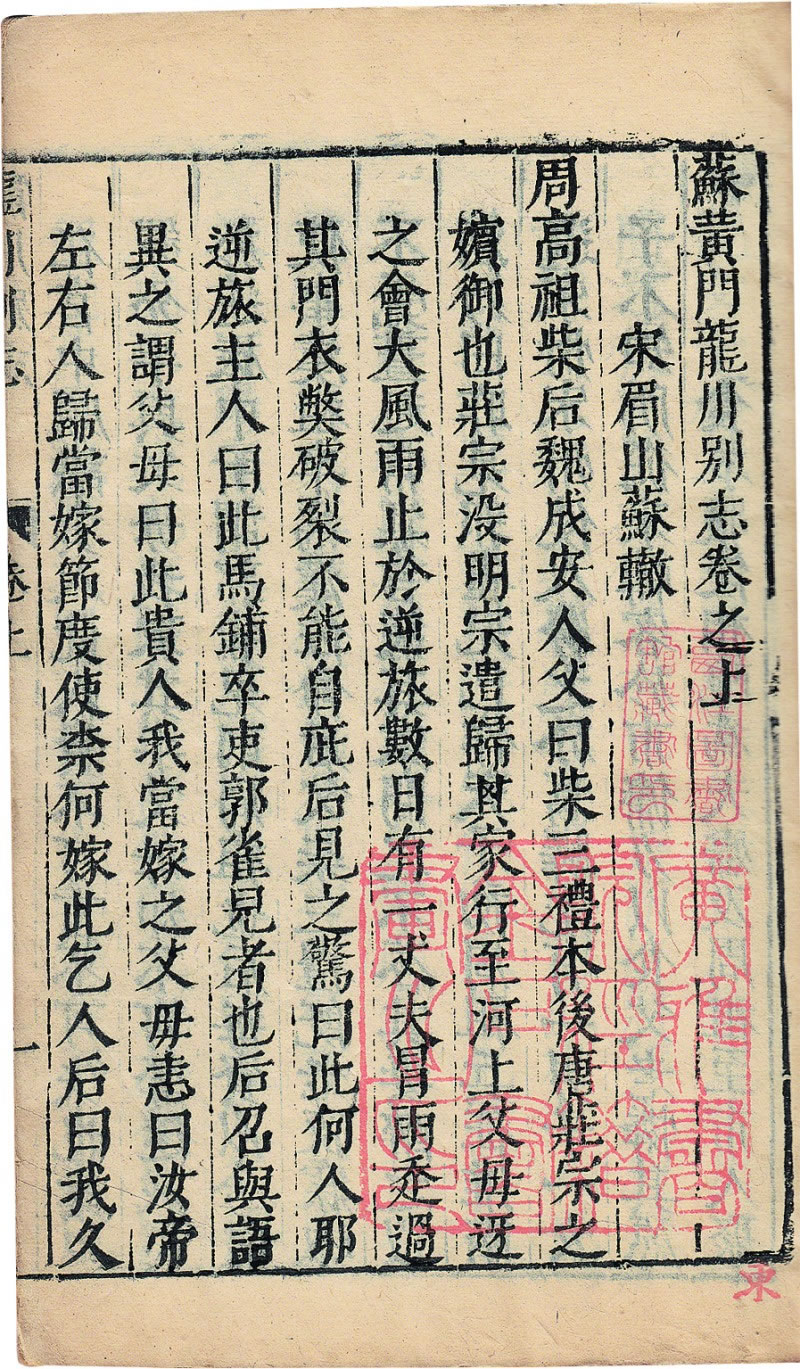 蘇黃門龍川別志卷之上
宋眉山蘇轍
周高祖柴后魏成安人父曰柴三禮本後唐莊宗之
嬪御也莊宗没明宗遣歸其家行至河上父母迓
之會大風雨止於逆旅數日有一丈夫冒雨走過
其門衣獘破裂不能自庇后見之驚曰此何人耶
逆旅主人曰此馬鋪卒吏郭雀兒者也后召與語
異之謂父母曰此貴人我當嫁之父母恚曰汝帝
左右人歸當嫁節度使柰何嫁此乞人后曰我久
卷上
一
東